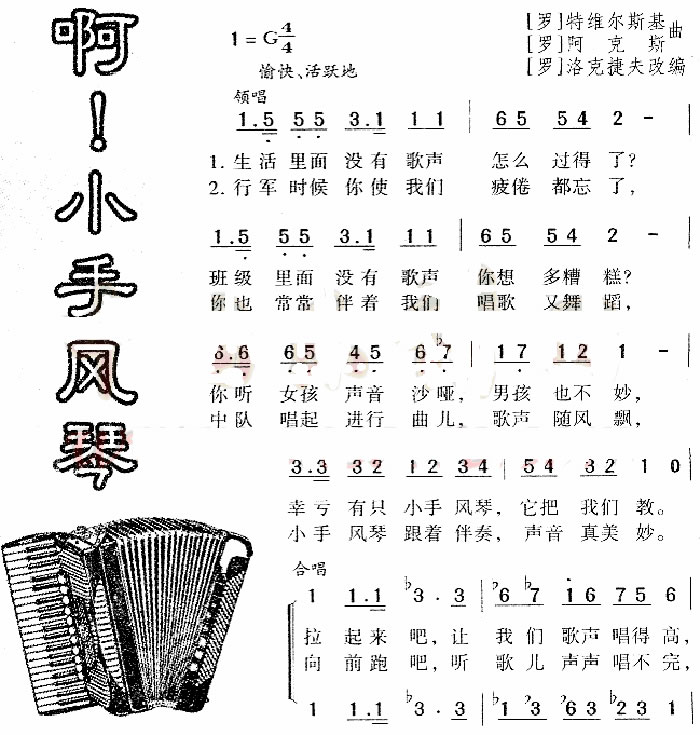 啊！小手风琴
1=G 4/4
愉快、活跃地
[罗]特维尔斯基
[罗]阿克斯 曲
[罗]洛克捷夫改编
领唱
1.5 55 3.1 11 | 65 54 2 -
1.生活里面没有歌声 怎么过得了?
2.行军时候你使我们 疲倦都忘了,
1.5 55 3.1 11 | 65 54 2 -
班级里面没有歌声 你想多糟糕?
你也常常伴着我们 唱歌又舞蹈,
6.6 65 45 6♭7 | 17 12 1 -
你听女孩声音沙哑, 男孩也不妙,
中队唱起进行曲儿, 歌声随风飘,
3.3 32 12 34 | 54 32 1 0
幸亏有只小手风琴, 它把我们教。
小手风琴跟着伴奏, 声音真美妙。
合唱
1 1.1 ♭3.3 | ♭6♭7 16 75 6
拉起来吧,让我们歌声唱得高,
向前跑吧,听歌儿声声唱不完,
1 1.1 ♭3.3 | ♭1♭3 ♭63 ♭23 1